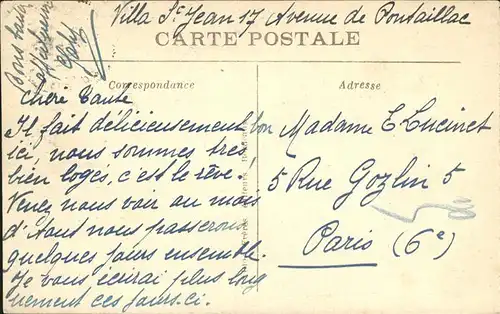 Villa St Jean 17 Avenue de Pontaillac
CARTE POSTALE
Bons baisers
affectueux
Correspondance
Adresse
Chère Tante
Il fait délicieusement bon
ici, nous sommes très
bien logés, c'est le rêve.
Venez nous voir au mois
d'Aout nous passerons
quelques jours ensemble.
Je vous écrirai plus long
uement ces jours-ci.
Madame E Lucinet
5 Rue Gozlin 5
Paris (6e)